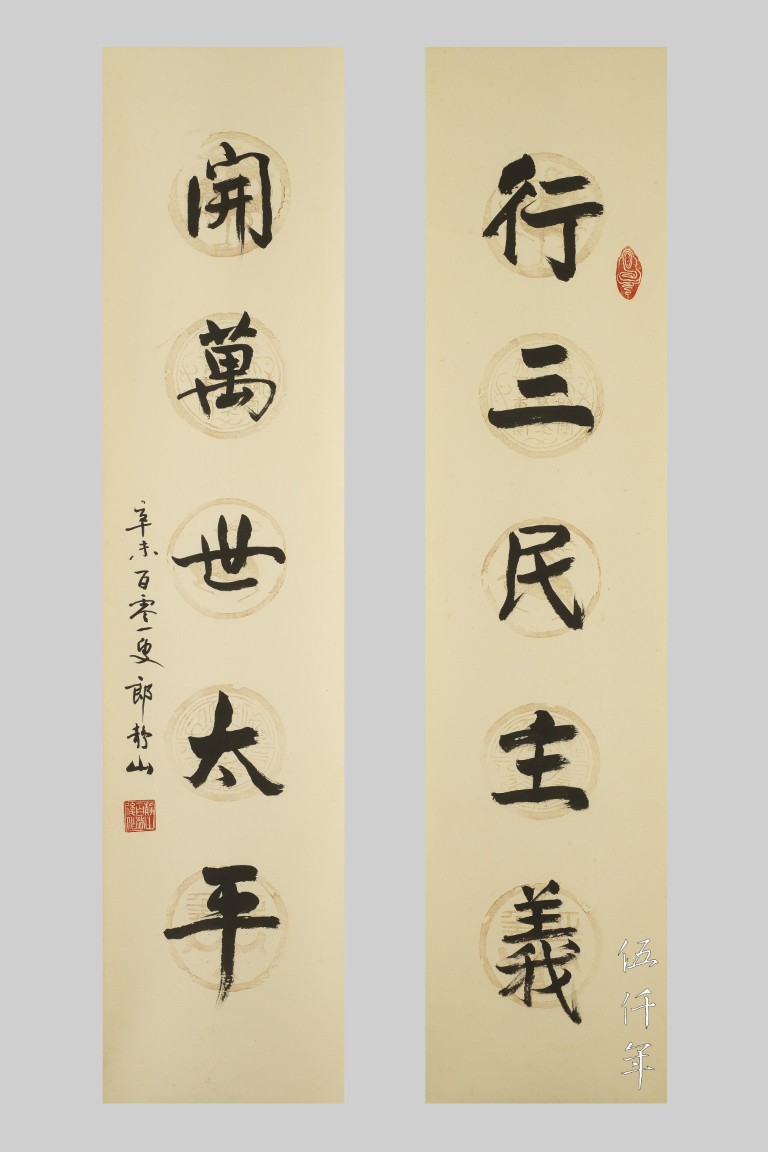 行三民主義
開萬世太平
辛未百零一叟郎靜山
伍仟年